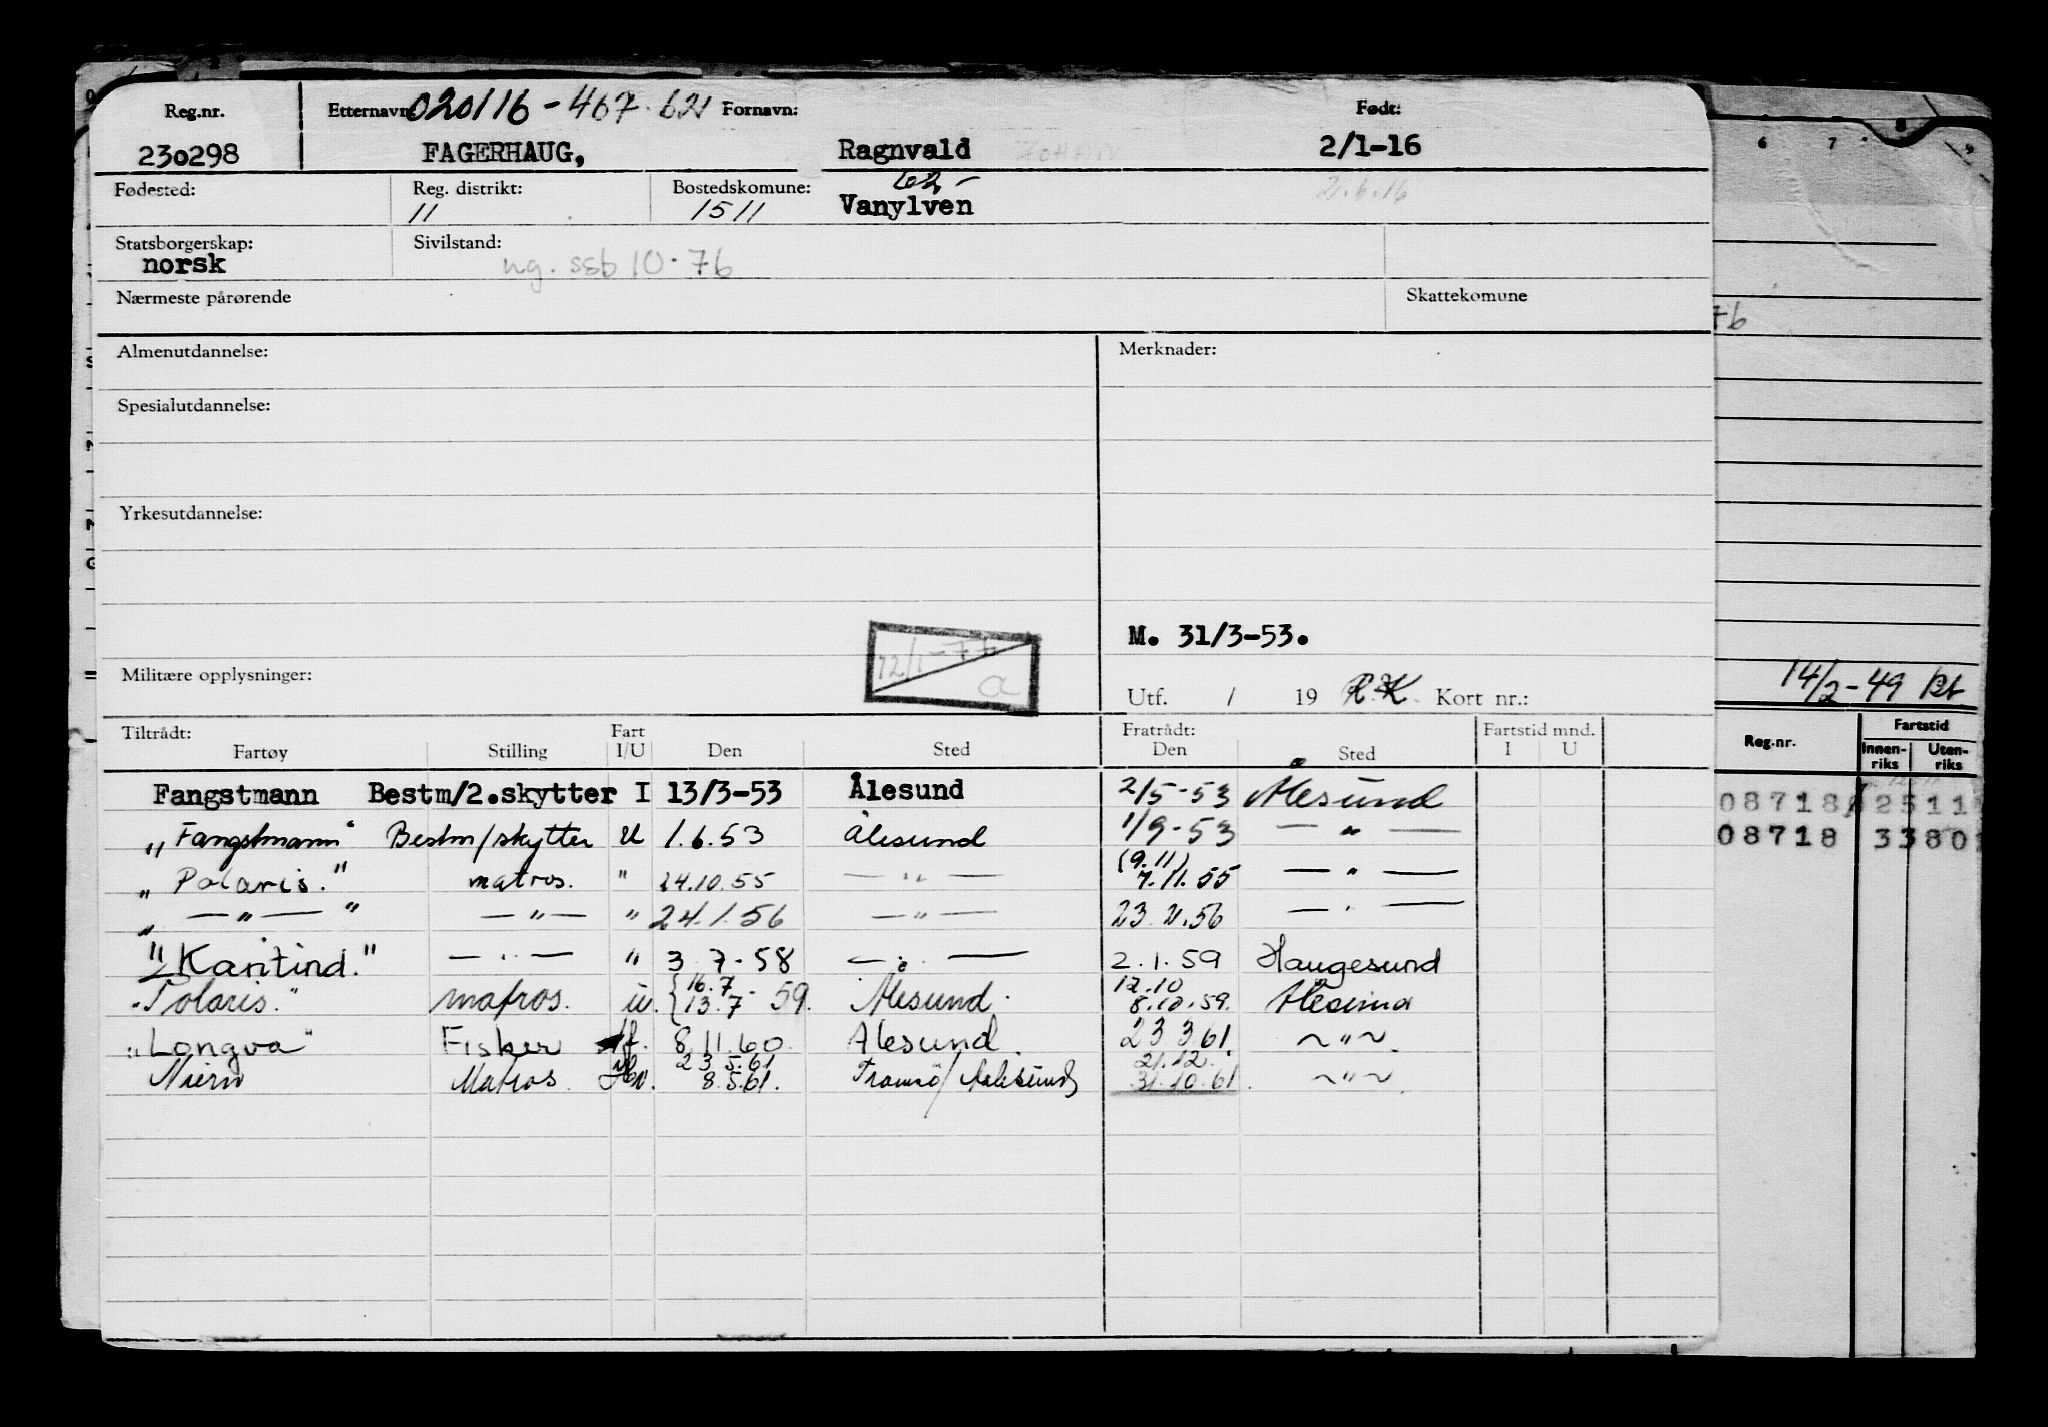 Reg.nr. Etternavn 020116-467.621 Fornavn: Født:
230298 FAGERHAUG, Ragnvald 2/1-16
Fødested: Reg. distrikt: Bostedskomune:
11 1511 Vanylven 2.6.16
Statsborgerskap: Sivilstand:
norsk ng. seb 10.76
Nærmeste pårørende Skattekomune
Almenutdannelse: Merknader:
Spesialutdannelse:
Yrkesutdannelse:
M. 31/3-53.
12/1-77
a
Militære opplysninger: Utf. / 19 R.K. Kort nr.:
Tiltrådt: Fart Fratrådt: Fartstid mnd.
Fartøy Stilling I/U Den Sted Den Sted I U
Fangstmann Bestm/2.skytter I 13/3-53 Ålesund 2/5-53 Ålesund
"Fangstmann" Bestm/skytter U 1.6.53 Ålesund 1/9-53 — " —
"Polaris." matros. " 24.10.55 — " — (9.11) 7.11.55 — " —
" — " — " — " — " 24.1.56 — " — 23.2.56 — " —
"Karitind." — " — " 3.7.58 — " — 2.1.59 Haugesund
"Polaris." matros. u. 16.7 13.7.59. Ålesund. 12.10 8.10.59. Ålesund
"Longva" Fisker f. 8.11.60. Ålesund 23.3.61 ~ " ~
Matros. 23.5.61 8.5.61. Tromsø/Aalesund 21.12. 31.10.61. ~ " ~
6 7 8 9
76
14/2-49
Reg.nr. Fartstid
Innen-riks Uten-riks
08718
08718 3380